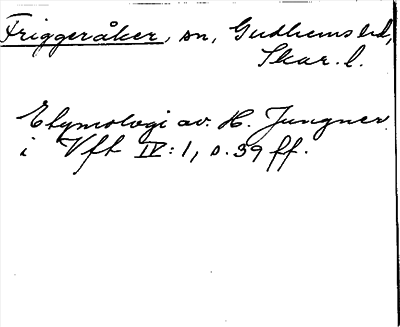 Friggeråker, sn, Gudhems hd,
Skar. l.
Etymologi av H. Jungner
i Vft IV: 1, s. 39 ff.